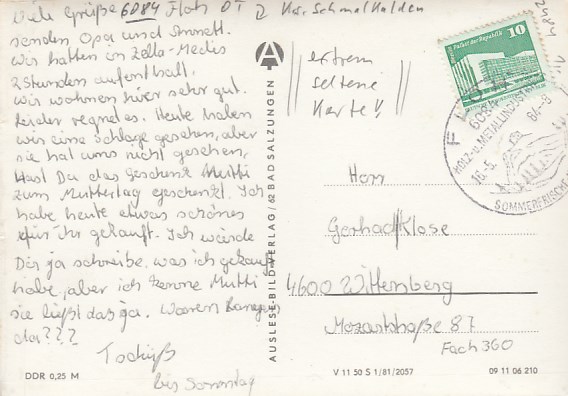 Viele Grüße 6084 Floh OT 2 Krs. Schmalkalden
senden Opa und Annett.
Wir hatten in Zella-Mehlis
2 Stunden aufenthalt.
Wir wohnen hier sehr gut.
Leider regnet es. Heute haben
wir eine Schlage gesehen, aber
sie hat uns nicht gesehen.
Hast Du das Geschenk Mutti
zum Muttertag geschenkt. Ich
habe heute etwas schönes
für ihr gekauft. Ich würde
Dir ja schreibe, was ich gekauft
habe, aber ich kenne Mutti
sie ließt das ja. Waren Ranger
da???
Tschüß
bis Sonntag
DDR 0,25 M
AUSLESE-BILD-VERLAG/62 BAD SALZUNGEN
extrem
seltene
Karte!!
Palast der Republik
10
DDR
HOLZ-U. METALLINDUSTRIE
16.-5. 84-9
SOMMERFRISCHE
Herr
Gerhard Klose
4600 Wittenberg
Mozartstraße 87
Fach 360
V 11 50 S 1/81/2057
09 11 06 210